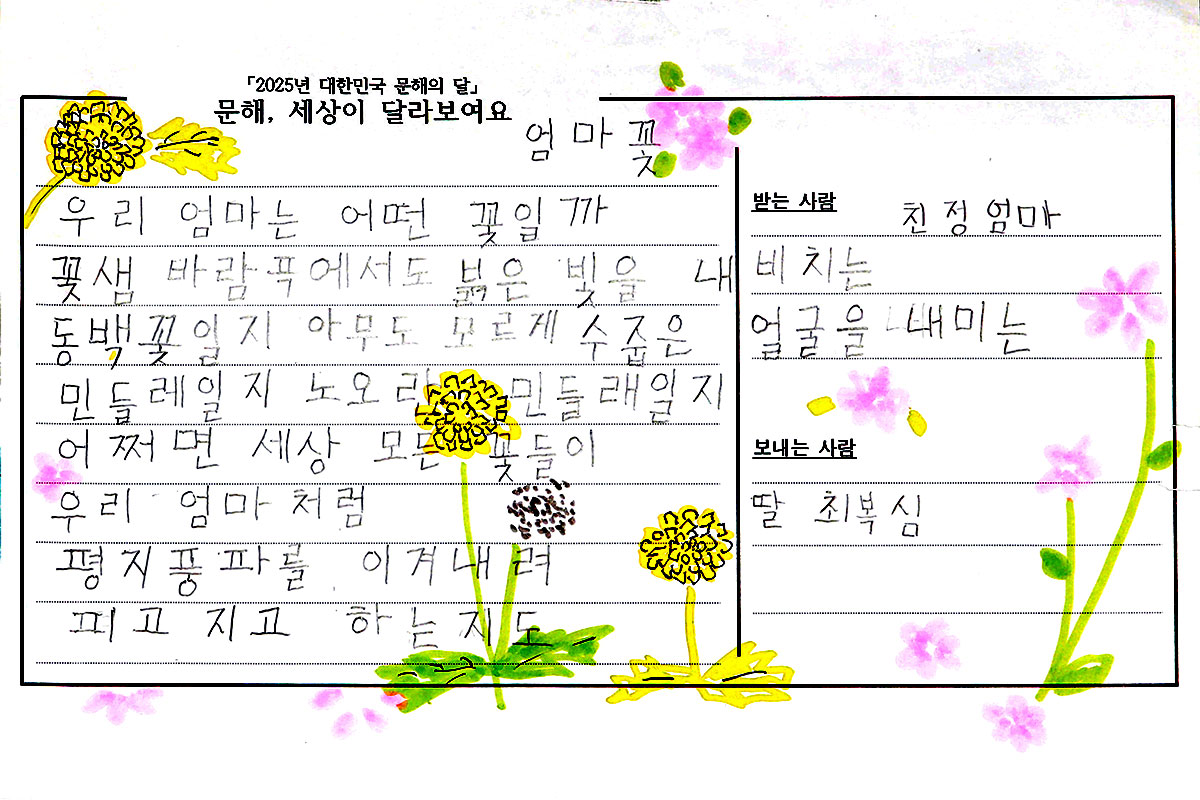 「2025년 대한민국 문해의 달」
문해, 세상이 달라보여요
엄마꽃
우리 엄마는 어떤 꽃일까
꽃샘 바람쪽에서도 붉은 빛을 내
비치는
동백꽃일지 아무도 모르게 수줍은
얼굴을 내미는
민들레일지 노오란 민들래일지
어쩌면 세상 모든 꽃들이
우리 엄마처럼
평지풍파를 이겨내려
피고 지고 하는지도
받는 사람
친정엄마
보내는 사람
딸 최복심